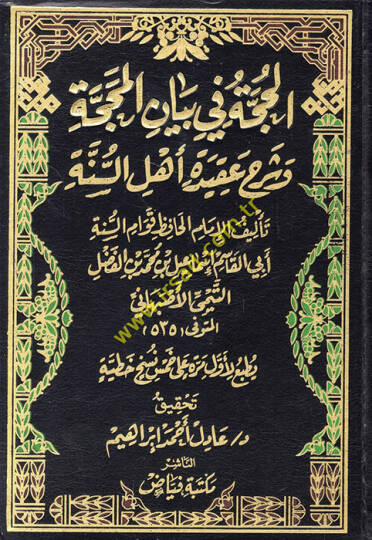 الحجة في بيان المحجة
وشرح عقيدة أهل السنة
تأليف الإمام الحافظ قوام السنة
أبي القاسم إسماعيل بن محمد بن الفضل
التيمي الأصبهاني
المتوفى (٥٣٥)
يطبع لأول مرة على خمس نسخ خطية
تحقيق
د/ عادل أحمد إبراهيم
الناشر
مكتبة فياض